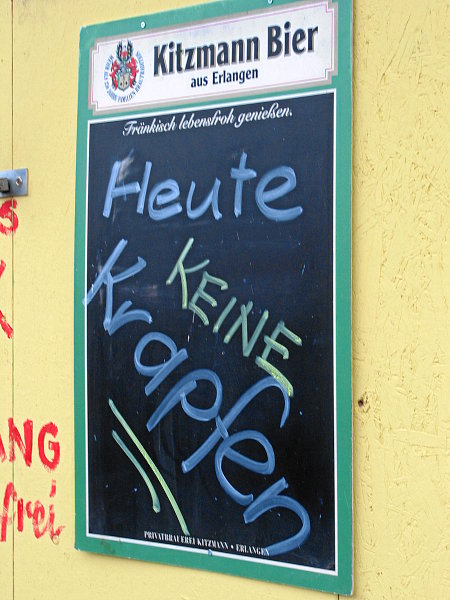 Kitzmann Bier
aus Erlangen
Fränkisch lebensfroh genießen.
Heute
KEINE
Krapfen
PRIVATBRAUEREI KITZMANN • ERLANGEN
ANG
frei